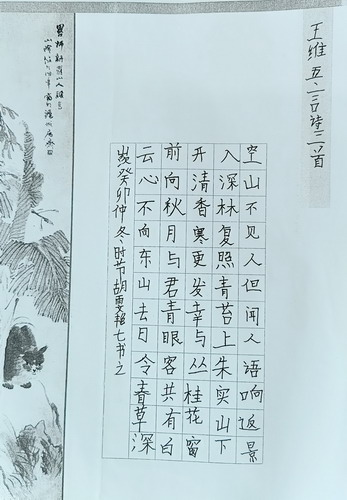 王维五言诗三首
空山不见人但闻人语响返景
入深林复照青苔上朱实山下
开清香寒更发幸与丛桂花窗
前向秋月与君青眼客共有白
云心不向东山去日令春草深
岁癸卯仲冬时节胡书之